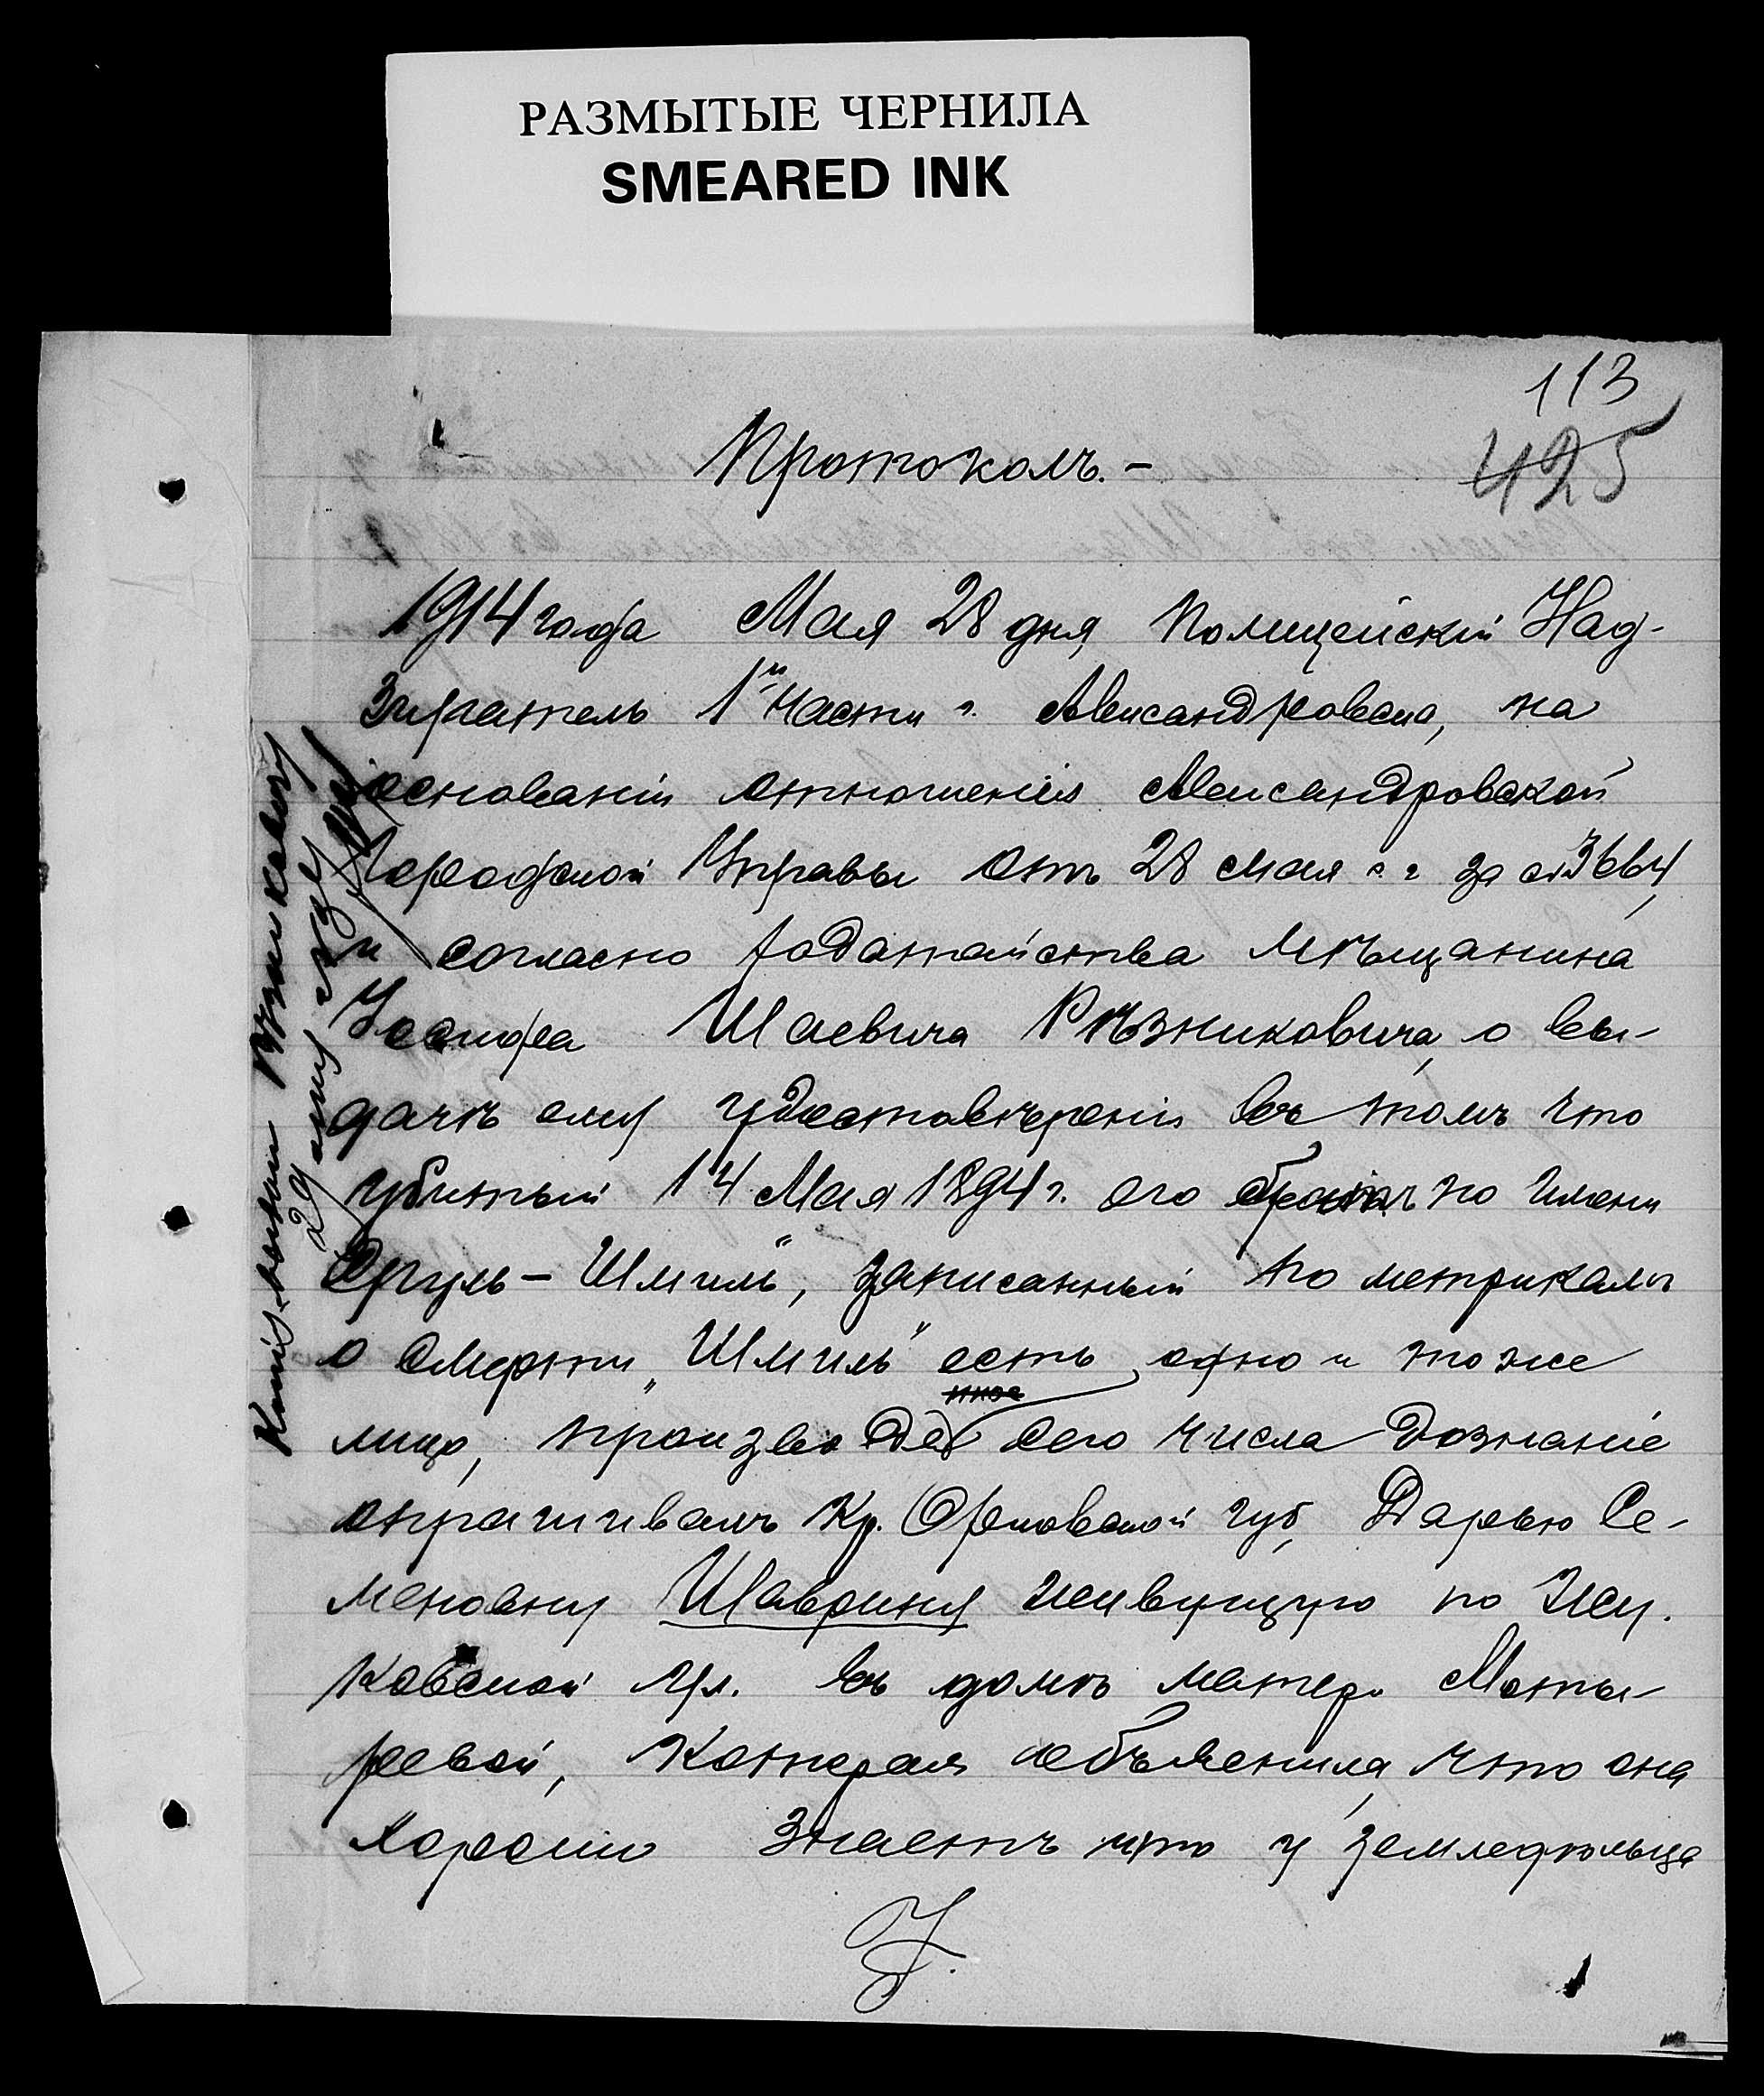 РАЗМЫТЫЕ ЧЕРНИЛА
SMEARED INK
113
425
Протоколъ.-
1914 года Мая 28 дня Полицейскій Над-
зиратель 1й части г. Александровска, на
основаніи отношенія Александровской
Городской Управы отъ 28 мая с. г за № 3664,
и согласно ходатайства мѣщанина
Іосифа Шаевича Рѣзниковича, о вы-
дачѣ ему удостовѣренія въ томъ что
убитый 14 Мая 1894 г. его братъ по имени
Сруль-Шмиль", записанный по метрикамъ
о смерти „Шмиль" есть одно и тоже
лицо, производя сего числа дознаніе
опрашивалъ Кр. Орловской губ, Дарью Се-
меновну Шаврину живущую по Жу-
ковской ул. въ домѣ матери
ревой, которая объяснила, что она
хорошо знаетъ что у земледѣльца
Копію получилъ Рѣзниковичъ
29 мая 1914